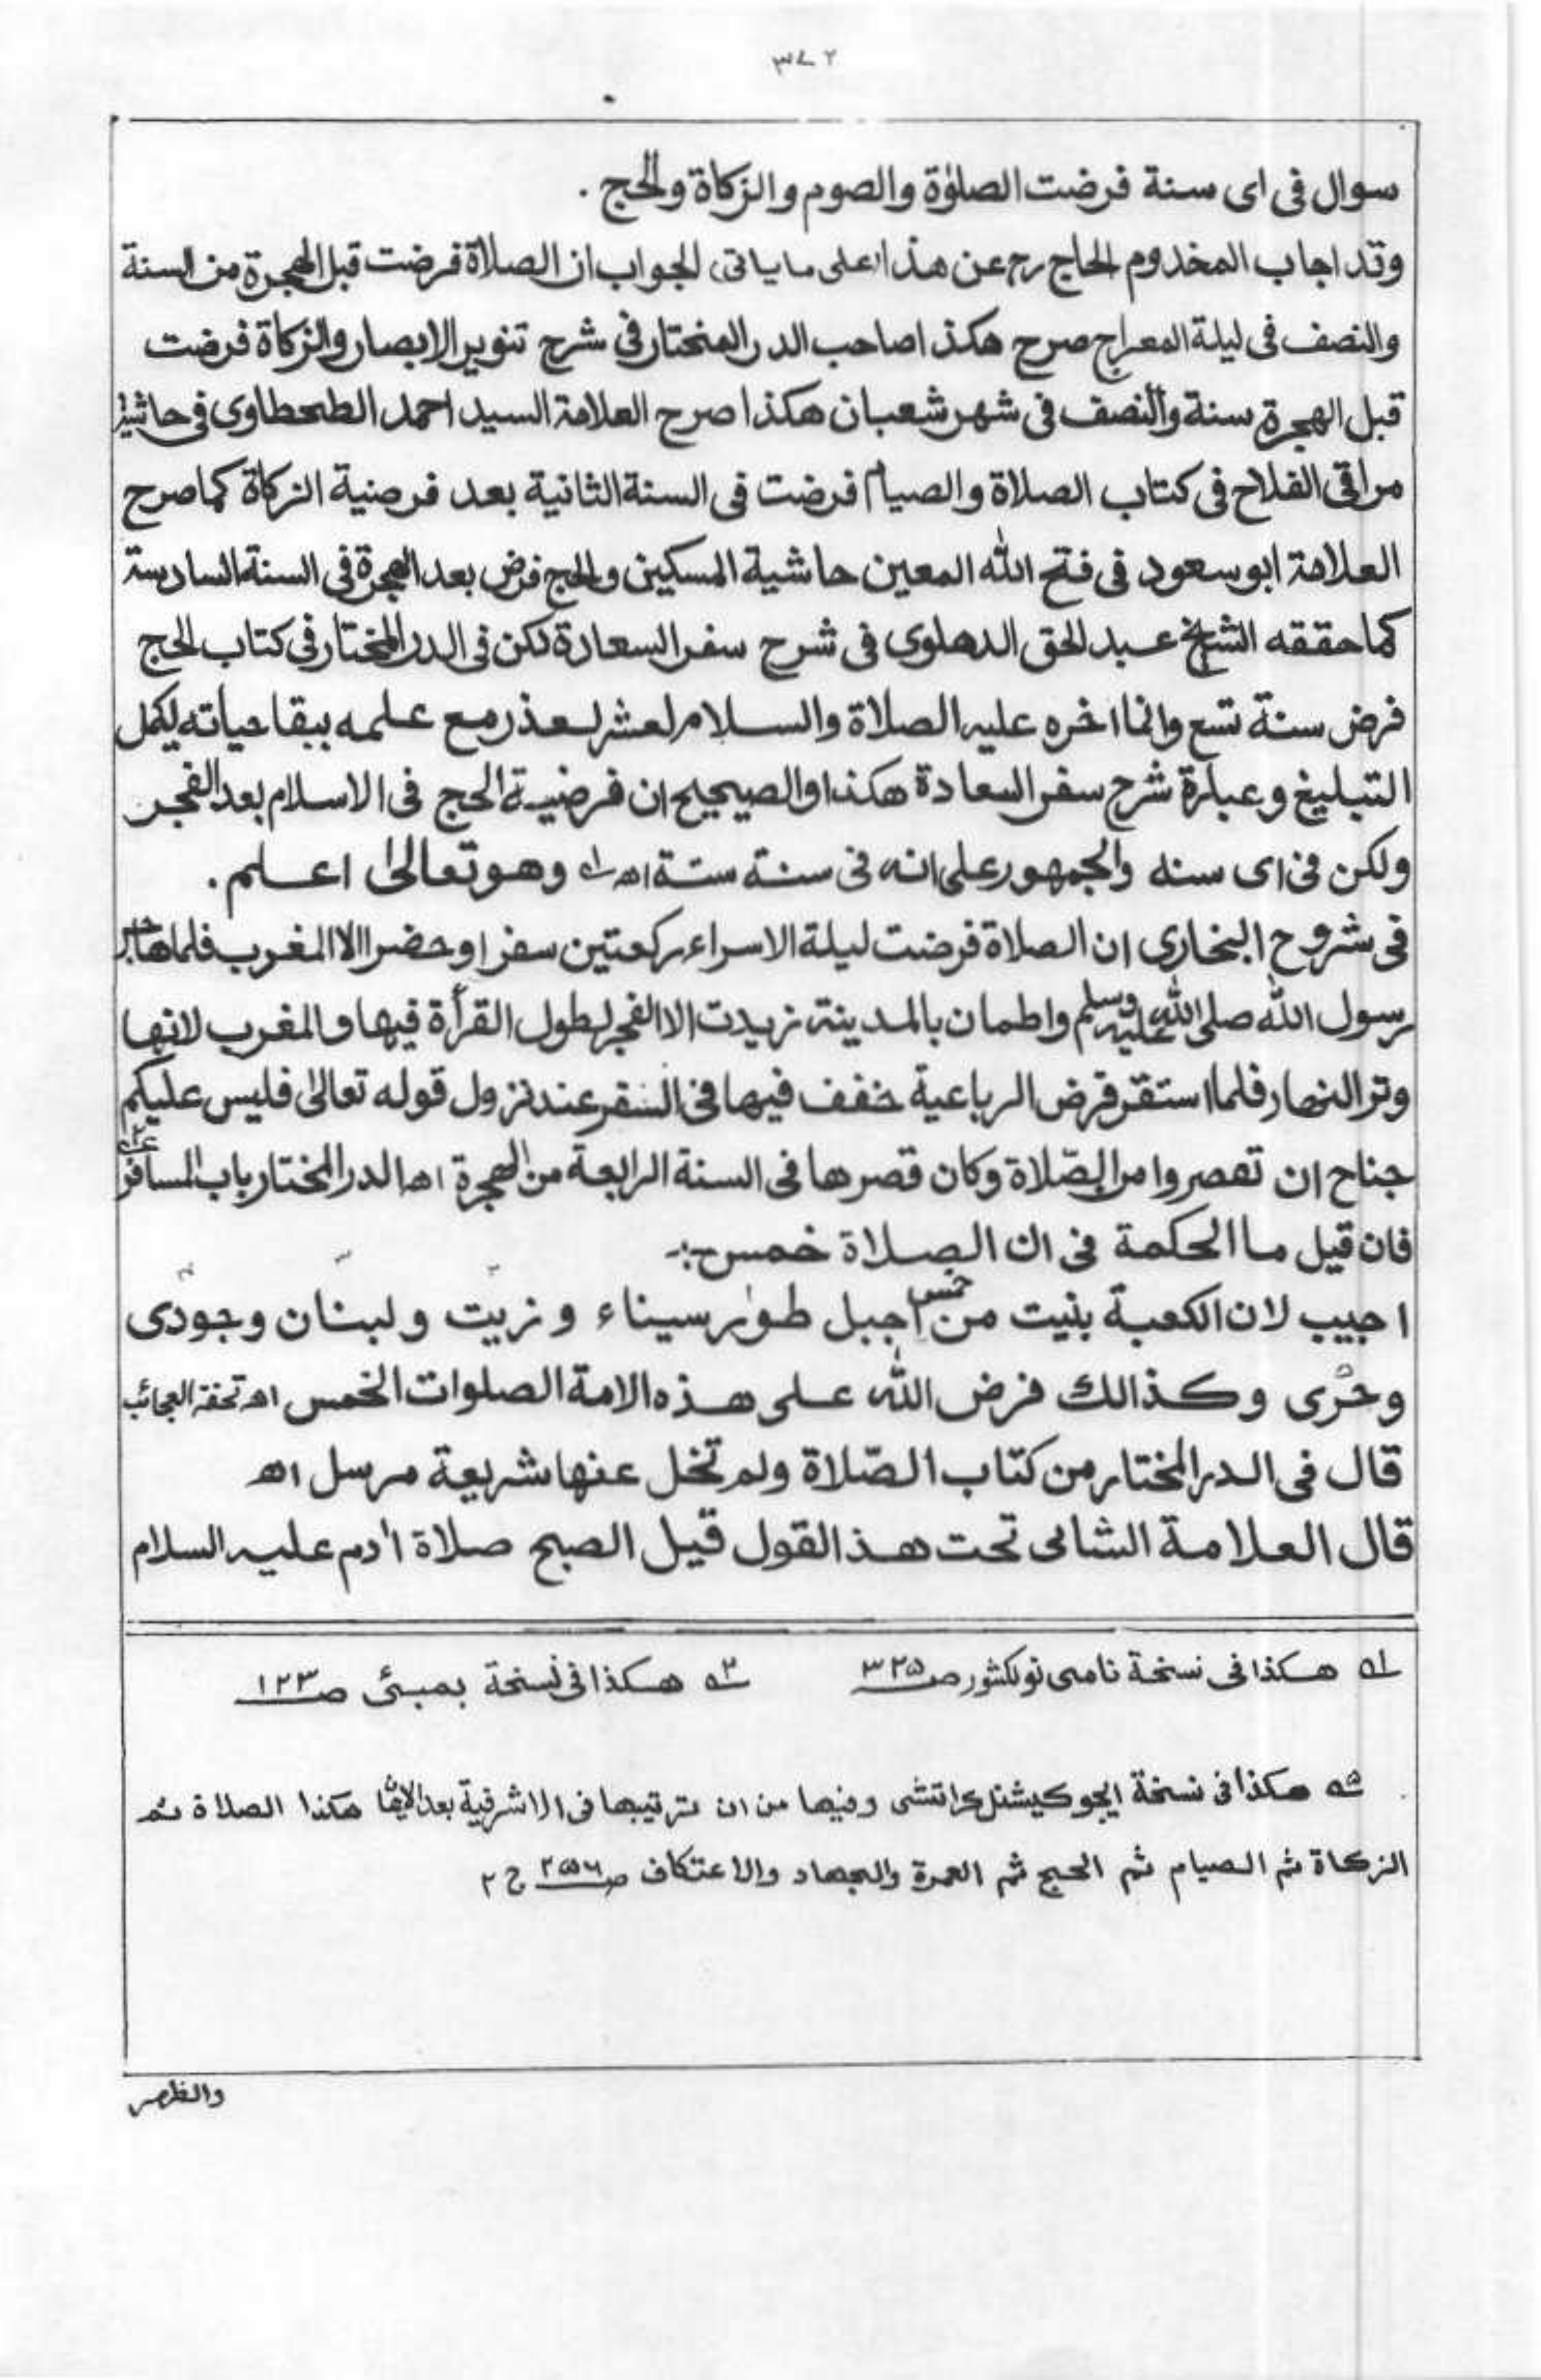 ٣٧٢
سوال فى اى سنة فرضت الصلوٰة والصوم والزكاة والحج .
وقد اجاب المخدوم الحاج رح عن هذا على ما ياتى الجواب ان الصلاة فرضت قبل الهجرة من السنة
والنصف فى ليلة المعراج صرح هكذا صاحب الدر المختار فى شرح تنوير الابصار والزكاة فرضت
قبل الهجرة سنة والنصف فى شهر شعبان هكذا صرح العلامة السيد احمد الطحطاوى فى حاشية
مراقى الفلاح فى كتاب الصلاة والصيام فرضت فى السنة الثانية بعد فرضية الزكاة كما صرح
العلامة ابو سعود فى فتح الله المعين حاشية المسكين والحج فرض بعد الهجرة فى السنة السادسة
كما حققه الشيخ عبد الحق الدهلوى فى شرح سفر السعادة لكن فى الدر المختار فى كتاب الحج
فرض سنة تسع وانما اخره عليه الصلاة والسلام لعشر لعذر مع علمه ببقا حياته ليكمل
التبليغ وعبارة شرح سفر السعادة هكذا والصيحيح ان فرضية الحج فى الاسلام بعد الفجر
ولكن فى اى سنه والجمهور على انه فى سنة ستة اھ ١ وهو تعالىٰ اعلم .
فى شروح البخارى ان الصلاة فرضت ليلة الاسراء ركعتين سفرا وحضرا الا المغرب فلما هاجر
رسول الله صلى الله عليه وسلم واطمان بالمدينة زيدت الا الفجر لطول القرأة فيها والمغرب لانها
وتر النهار فلما استقر فرض الرباعية خفف فيها فى السفر عند نزول قوله تعالىٰ فليس عليكم
جناح ان تقصروا من الصّلاة وكان قصرها فى السنة الرابعة من الهجرة اھ الدر المختار باب المسافر ٢
فان قيل ما الحكمة فى ان الصلاة خمس :-
اجيب لان الكعبة بنيت من خمس اجبل طور سيناء و زيت و لبنان و جودى
وحرى وكذالك فرض الله على هذه الامة الصلوات الخمس اھ تحفة العجائب
قال فى الدر المختار من كتاب الصّلاة ولم تخل عنها شريعة مرسل اھ
قال العلامة الشامى تحت هذ القول قيل الصبح صلاة اٰدم عليه السلام
١ هكذا فى نسخة نامى نولكشور ص ٣٢٥ ٢ هكذا فى نسخة بمبئى ص ١٢٣
هكذا فى نسخة ايجوكيشنل كراتشى وفيها من ان ترتيبها فى الاشرفية بعد الايمان هكذا الصلاة ثم
الزكاة ثم الصيام ثم الحج ثم العمرة والجهاد والاعتكاف ص ٢٥٦ ج ٢
والظهر